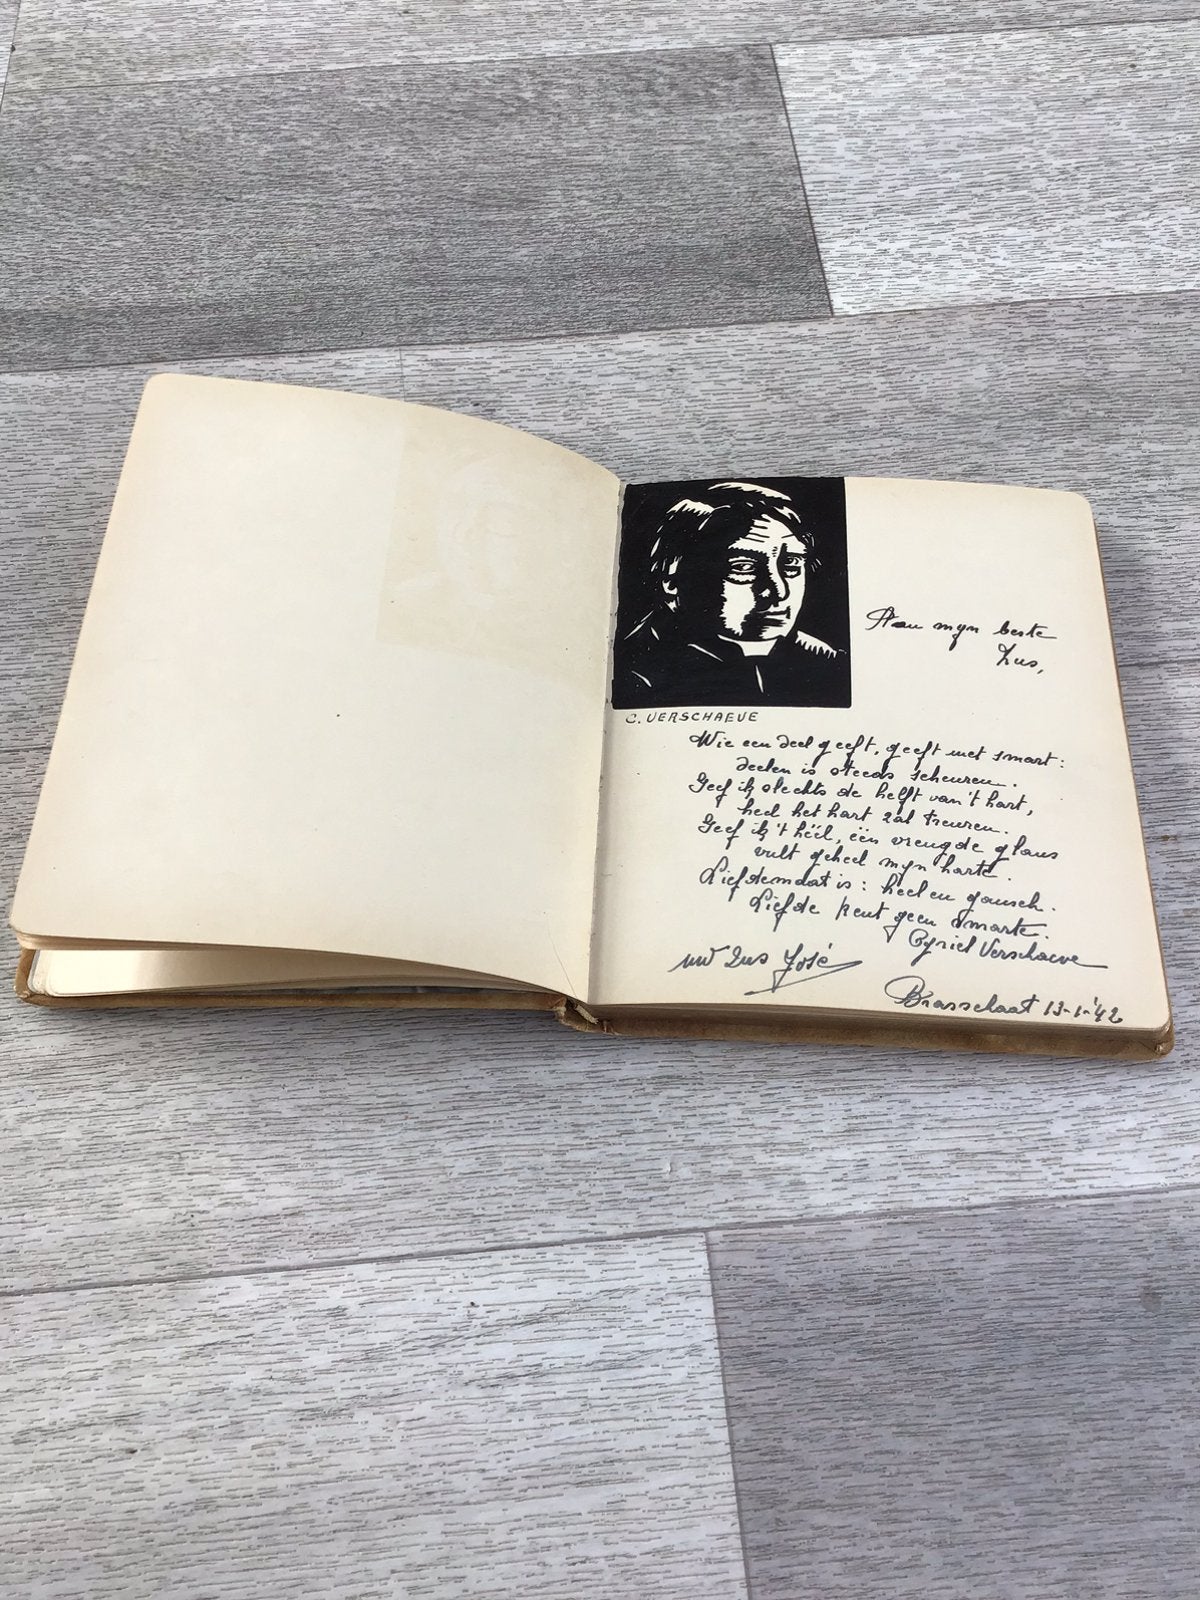 Aan mijn beste
Zus,
C. VERSCHAEVE
Wie een deel geeft, geeft met smart:
deelen is steeds scheuren.
Geef ik slechts de helft van 't hart,
heel het hart zal treuren.
Geef ik 't héél, één vreugde glans
vult geheel mijn harte.
Liefdemaat is: heel en gansch.
Liefde kent geen smarte.
Cyriel Verschaeve
uw Zus José
Brasschaat 13-1-'42